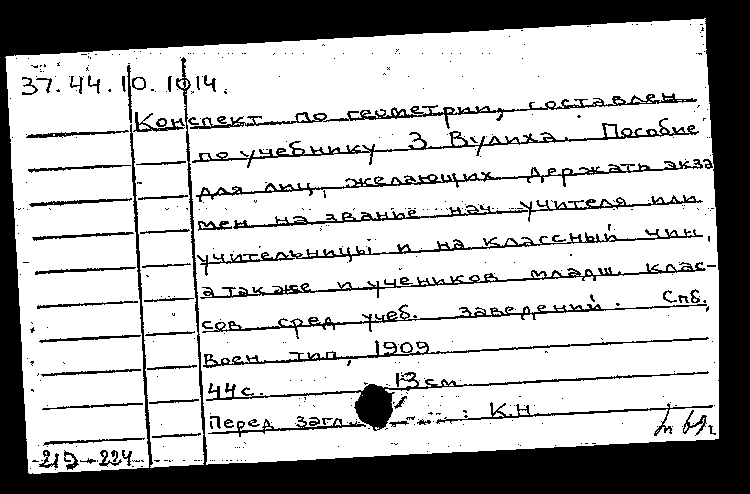 37.44.10.1014.
Конспект по геометрии, составлен
по учебнику З Вулиха. Пособие
для лиц, желающих держать экза
мен на звание нач. учителя или
учительницы и на классный чин,
а также и учеников младш. клас-
сов сред. учеб. заведений. Спб.,
Воен. тип, 1909
44 с. 13 см
Перед загл. : К.Н
219-224